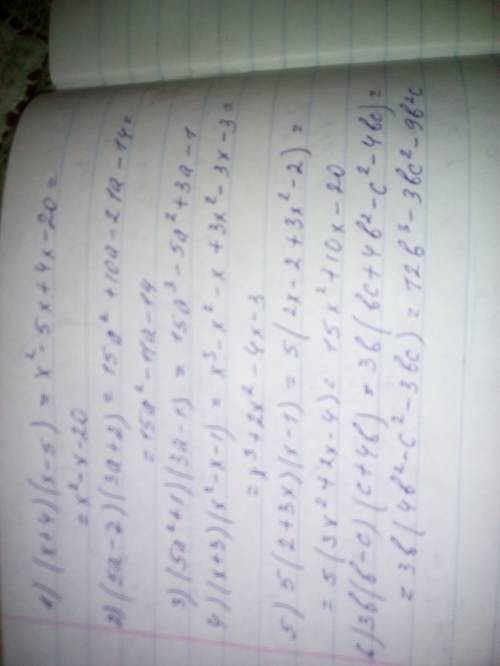 1) (x+4)(x-5) = x² - 5x + 4x - 20 =
= x² - x - 20
2) (5a-2)(3a+2) = 15a² + 10a - 21a - 14 =
= 15a² - 11a - 14
3) (5a²+1)(3a-1) = 15a³ - 5a² + 3a - 1
4) (x+3)(x²-x-1) = x³ - x² - x + 3x² - 3x - 3 =
= x³ + 2x² - 4x - 3
5) 5(2+3x)(x-1) = 5(2x - 2 + 3x² - 2) =
= 5(3x² + 2x - 4) = 15x² + 10x - 20
6) 3b(b-c)(c+4b) = 3b(bc + 4b² - c² - 4bc) =
= 3b(4b² - c² - 3bc) = 12b³ - 3bc² - 9b²c